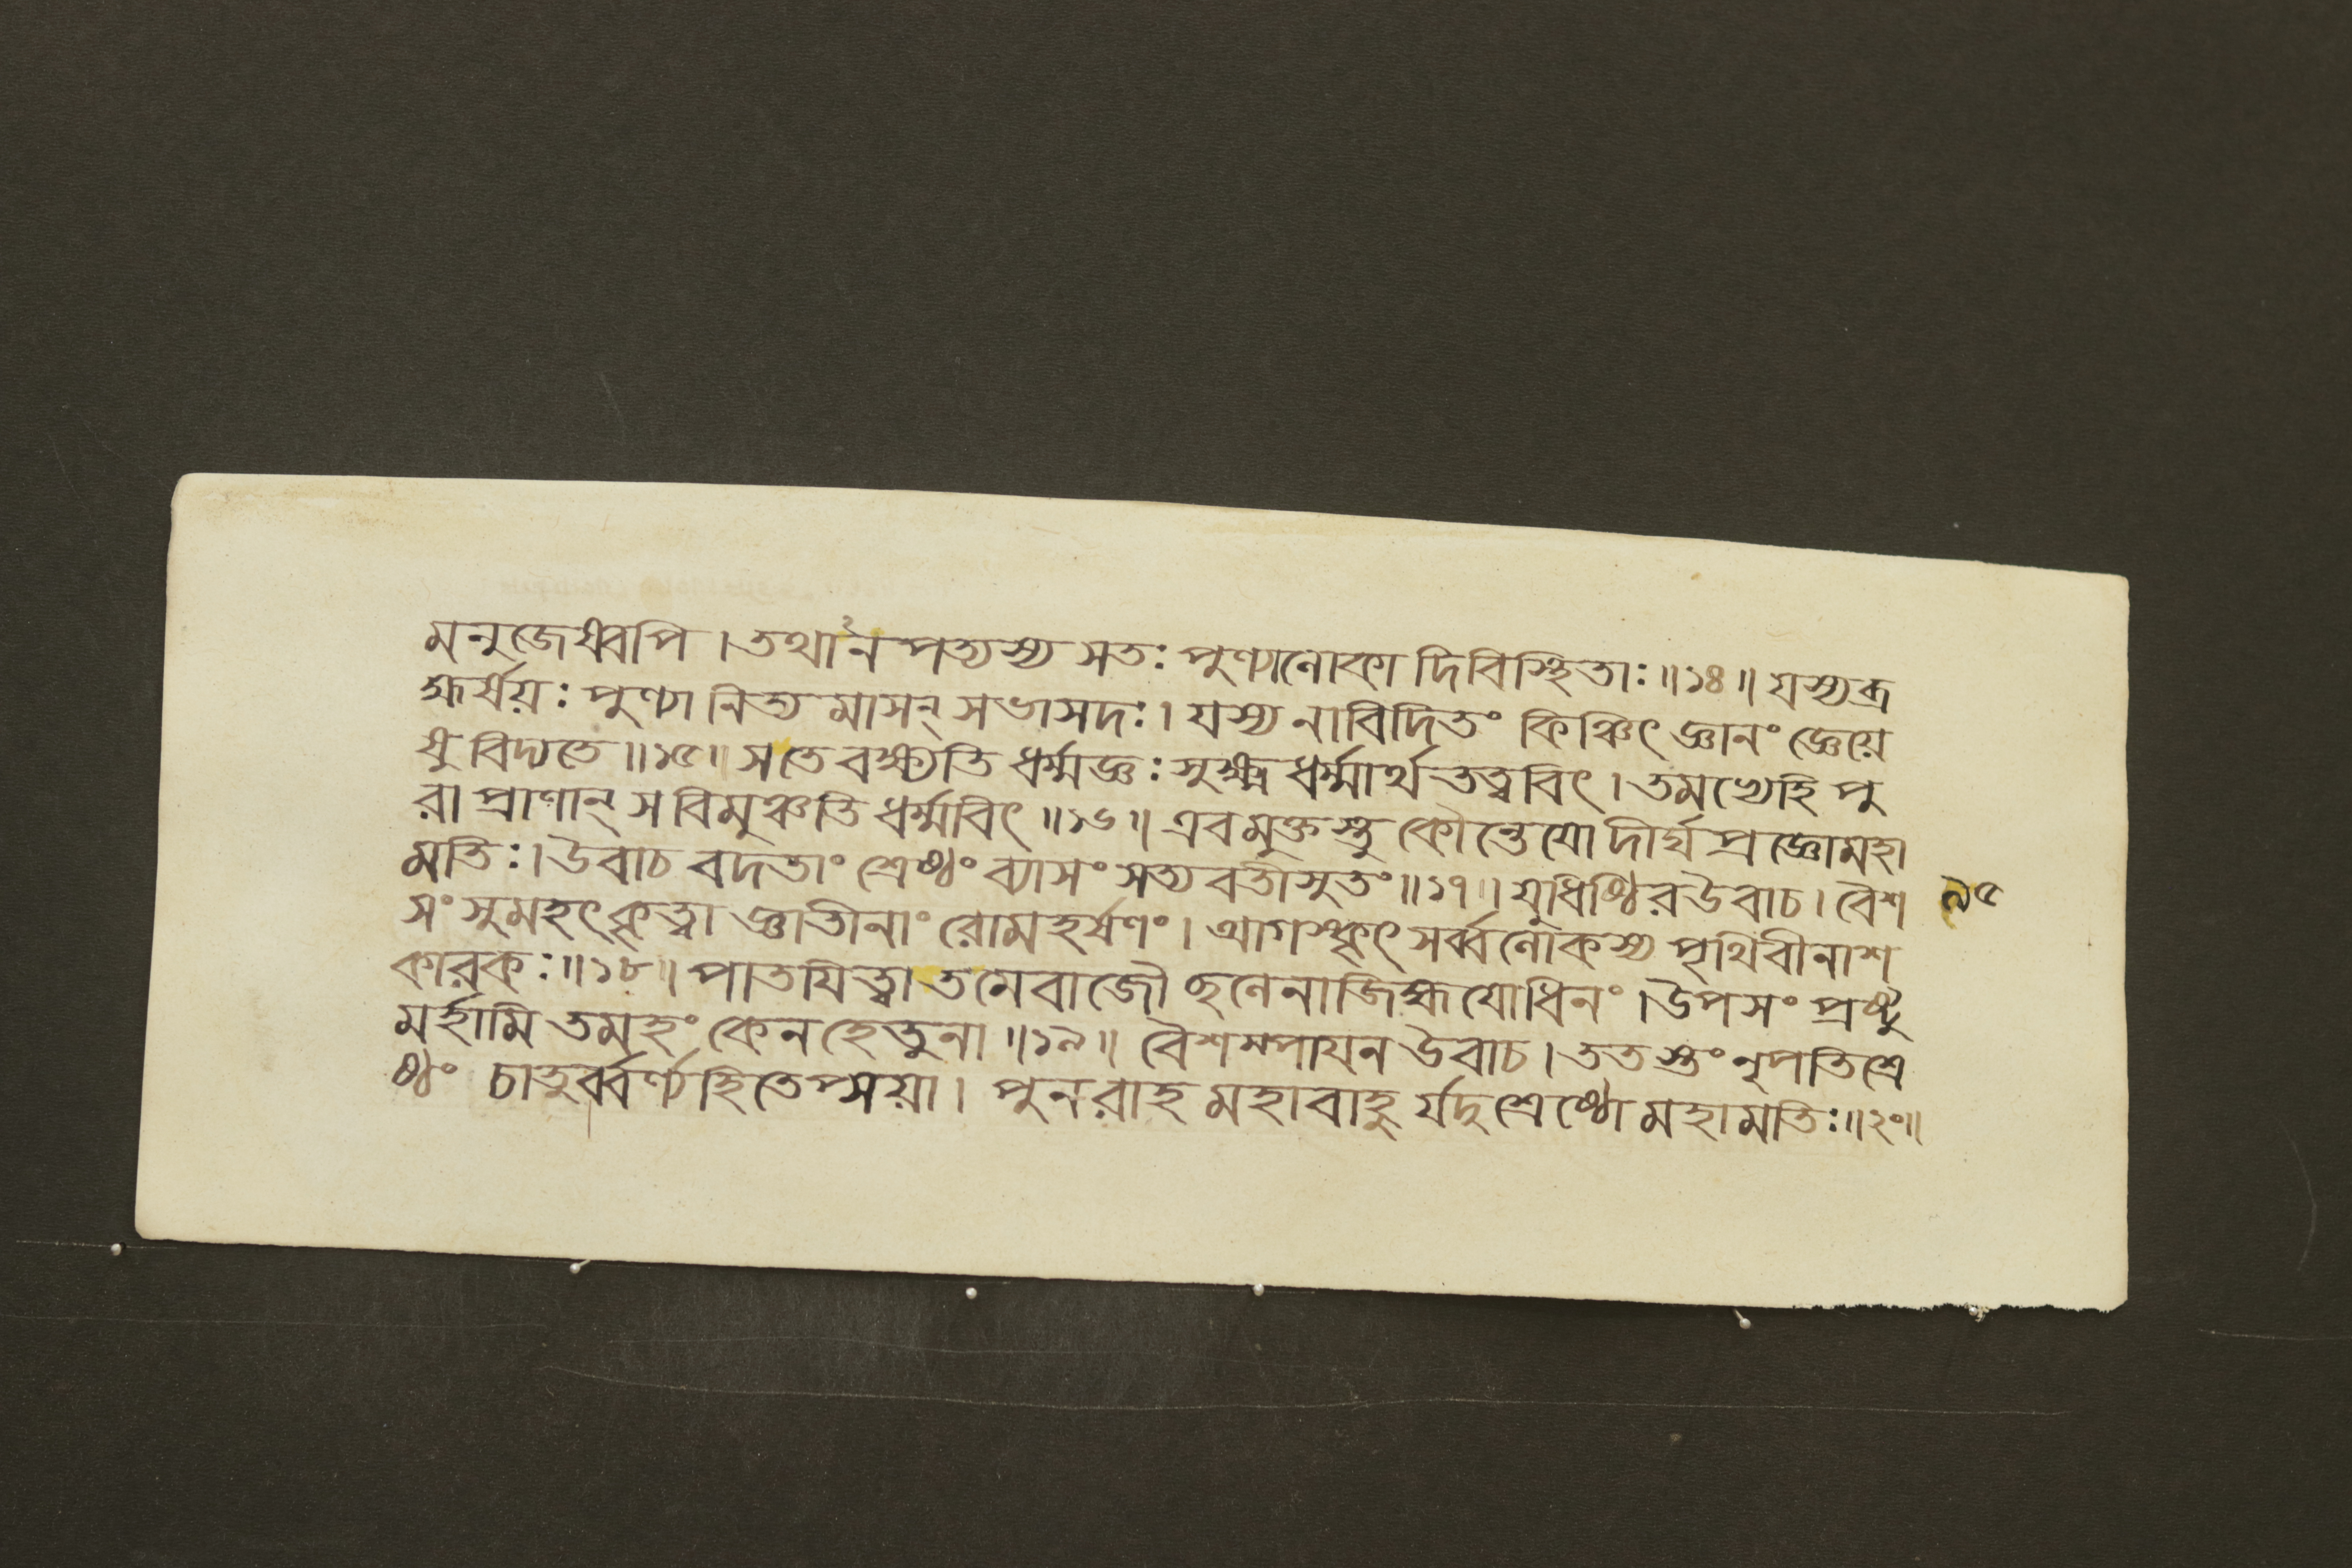 মনুজেষ্বপি । তথা২নপত্যস্য সতঃ পুণ্যালোকা দিবিস্থিতাঃ ॥ ১৪ ॥ যস্যব্র
হ্মর্ষয়ঃ পুণ্যা নিত্য মাসন্ সভাসদঃ । যস্য নাবিদিতং কিঞ্চিৎ জ্ঞানং জ্ঞেয়ে
ষু বিদ্যতে ॥ ১৫ ॥ সতে বক্ষ্যতি ধর্ম্মজ্ঞঃ সুক্ষ্ম ধর্ম্মার্থ তত্ত্ববিৎ । তমভ্যেহি পু
রা প্রাণান্ স বিমুঞ্চতি ধর্ম্মবিৎ ॥ ১৬ ॥ এবমুক্তস্তু কৌন্তেযো দীর্ঘ প্রজ্ঞোমহা
মতিঃ । উবাচ বদতাং শ্রেষ্ঠং ব্যাসং সত্যবতীসুতং ॥ ১৭ ॥ যুধিষ্ঠির উবাচ । বৈশ
৯৫
সং সুমহৎ কৃত্বা জ্ঞাতীনাং রোমহর্ষণং । আগস্কৃৎ সর্ব্বলোকস্য পৃথিবীনাশ
কারকঃ ॥ ১৮ ॥ পাতযিত্বা তমেবাজৌ ছলেনাজিহ্ম যোধিনং । উপসং প্রষ্টু
মর্হামি তমহং কেন হেতুনা ॥ ১৯ ॥ বৈশম্পাযন উবাচ । ততস্তং নৃপতিশ্রে
ষ্ঠং চাতুর্ব্বর্ণ্যহিতেপ্সয়া । পুনরাহ মহাবাহু র্যদুশ্রেষ্ঠো মহামতিঃ ॥ ২০ ॥